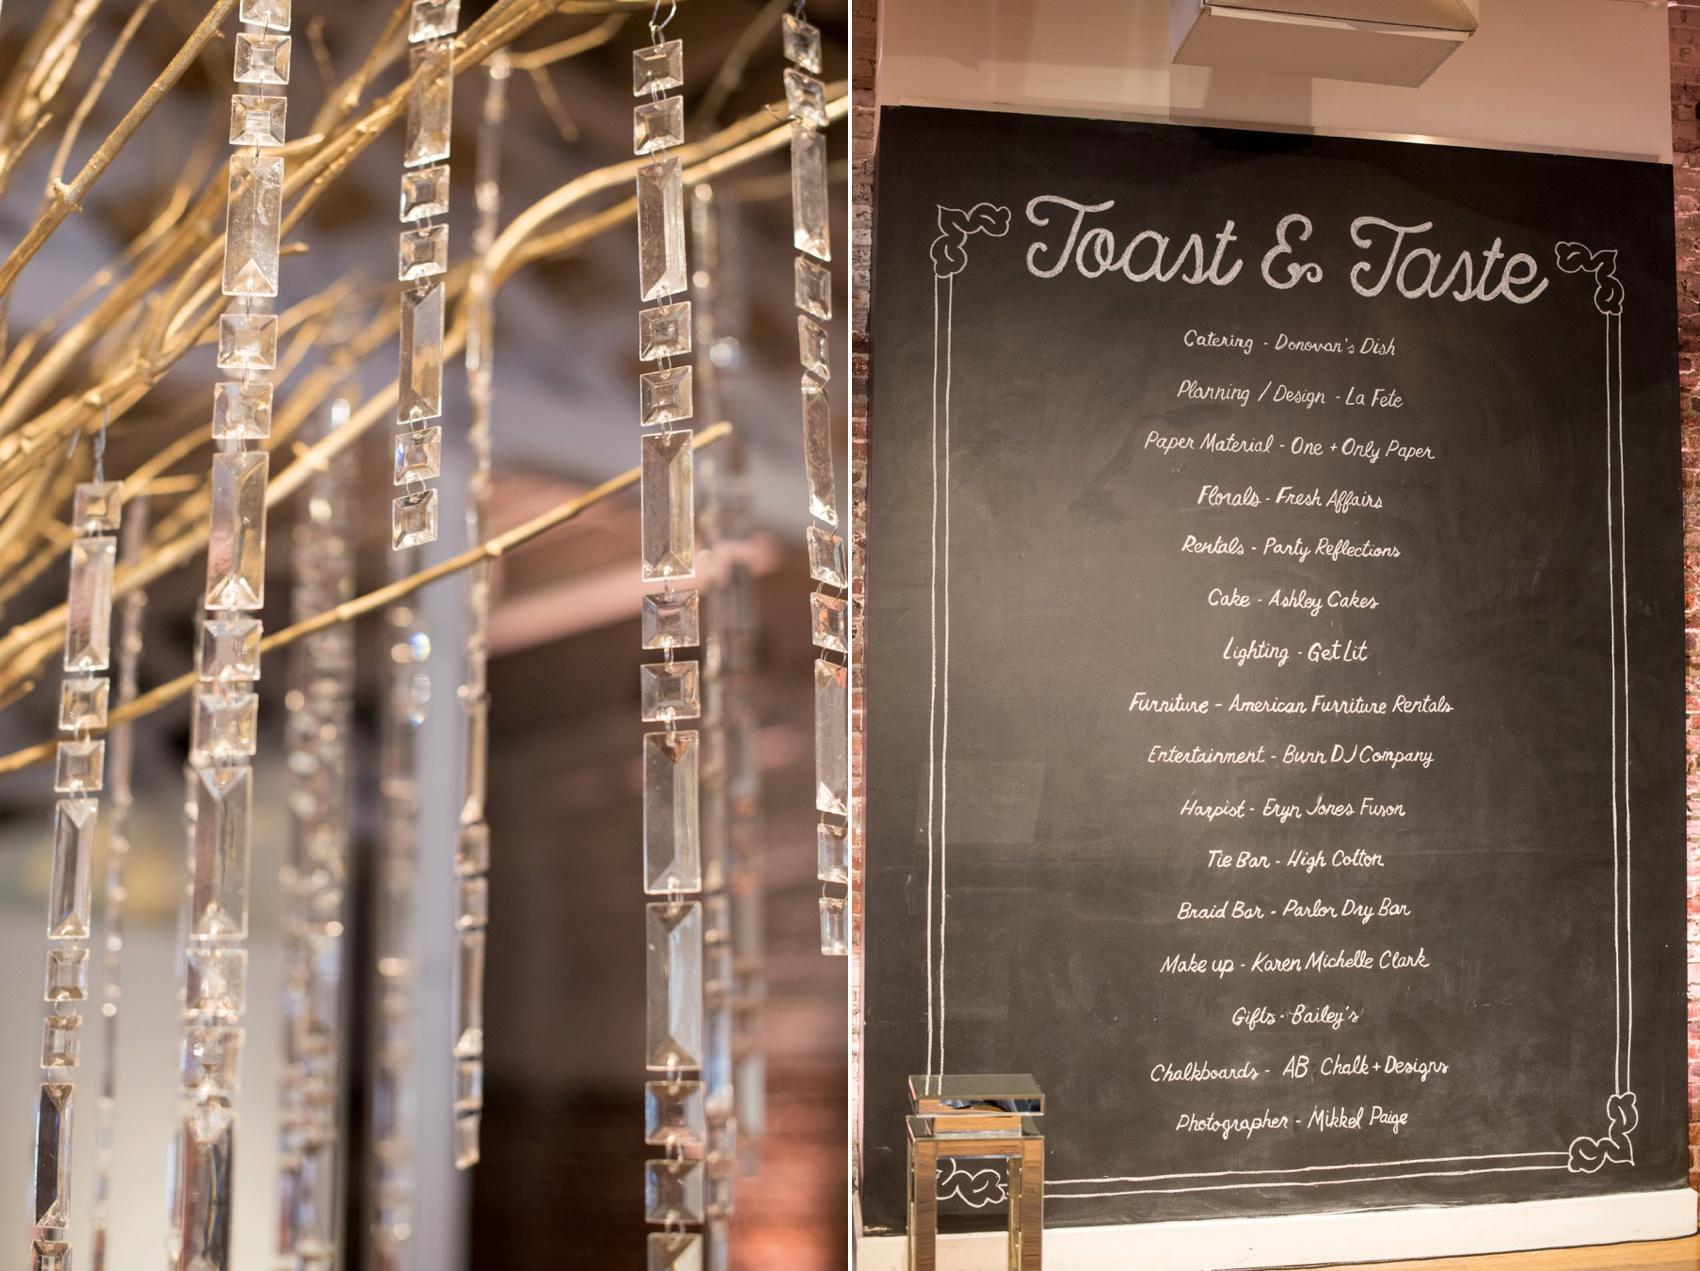 Toast & Taste
Catering - Donovan's Dish
Planning / Design - La Fete
Paper Material - One + Only Paper
Florals - Fresh Affairs
Rentals - Party Reflections
Cake - Ashley Cakes
Lighting - Get Lit
Furniture - American Furniture Rentals
Entertainment - Bunn DJ Company
Harpist - Eryn Jones Fuson
Tie Bar - High Cotton
Braid Bar - Parlor Dry Bar
Make up - Karen Michelle Clark
Gifts - Bailey's
Chalkboards - AB Chalk + Designs
Photographer - Mikkel Paige